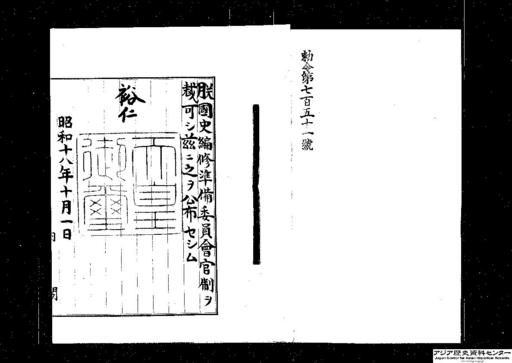 勅令第七百五十一號
朕國史編修準備委員會官制ヲ
裁可シ茲ニ之ヲ公布セシム
裕仁
天皇御璽
昭和十八年十月一日
内閣
アジア歴史資料センター
Japan Center for Asian Historical Records